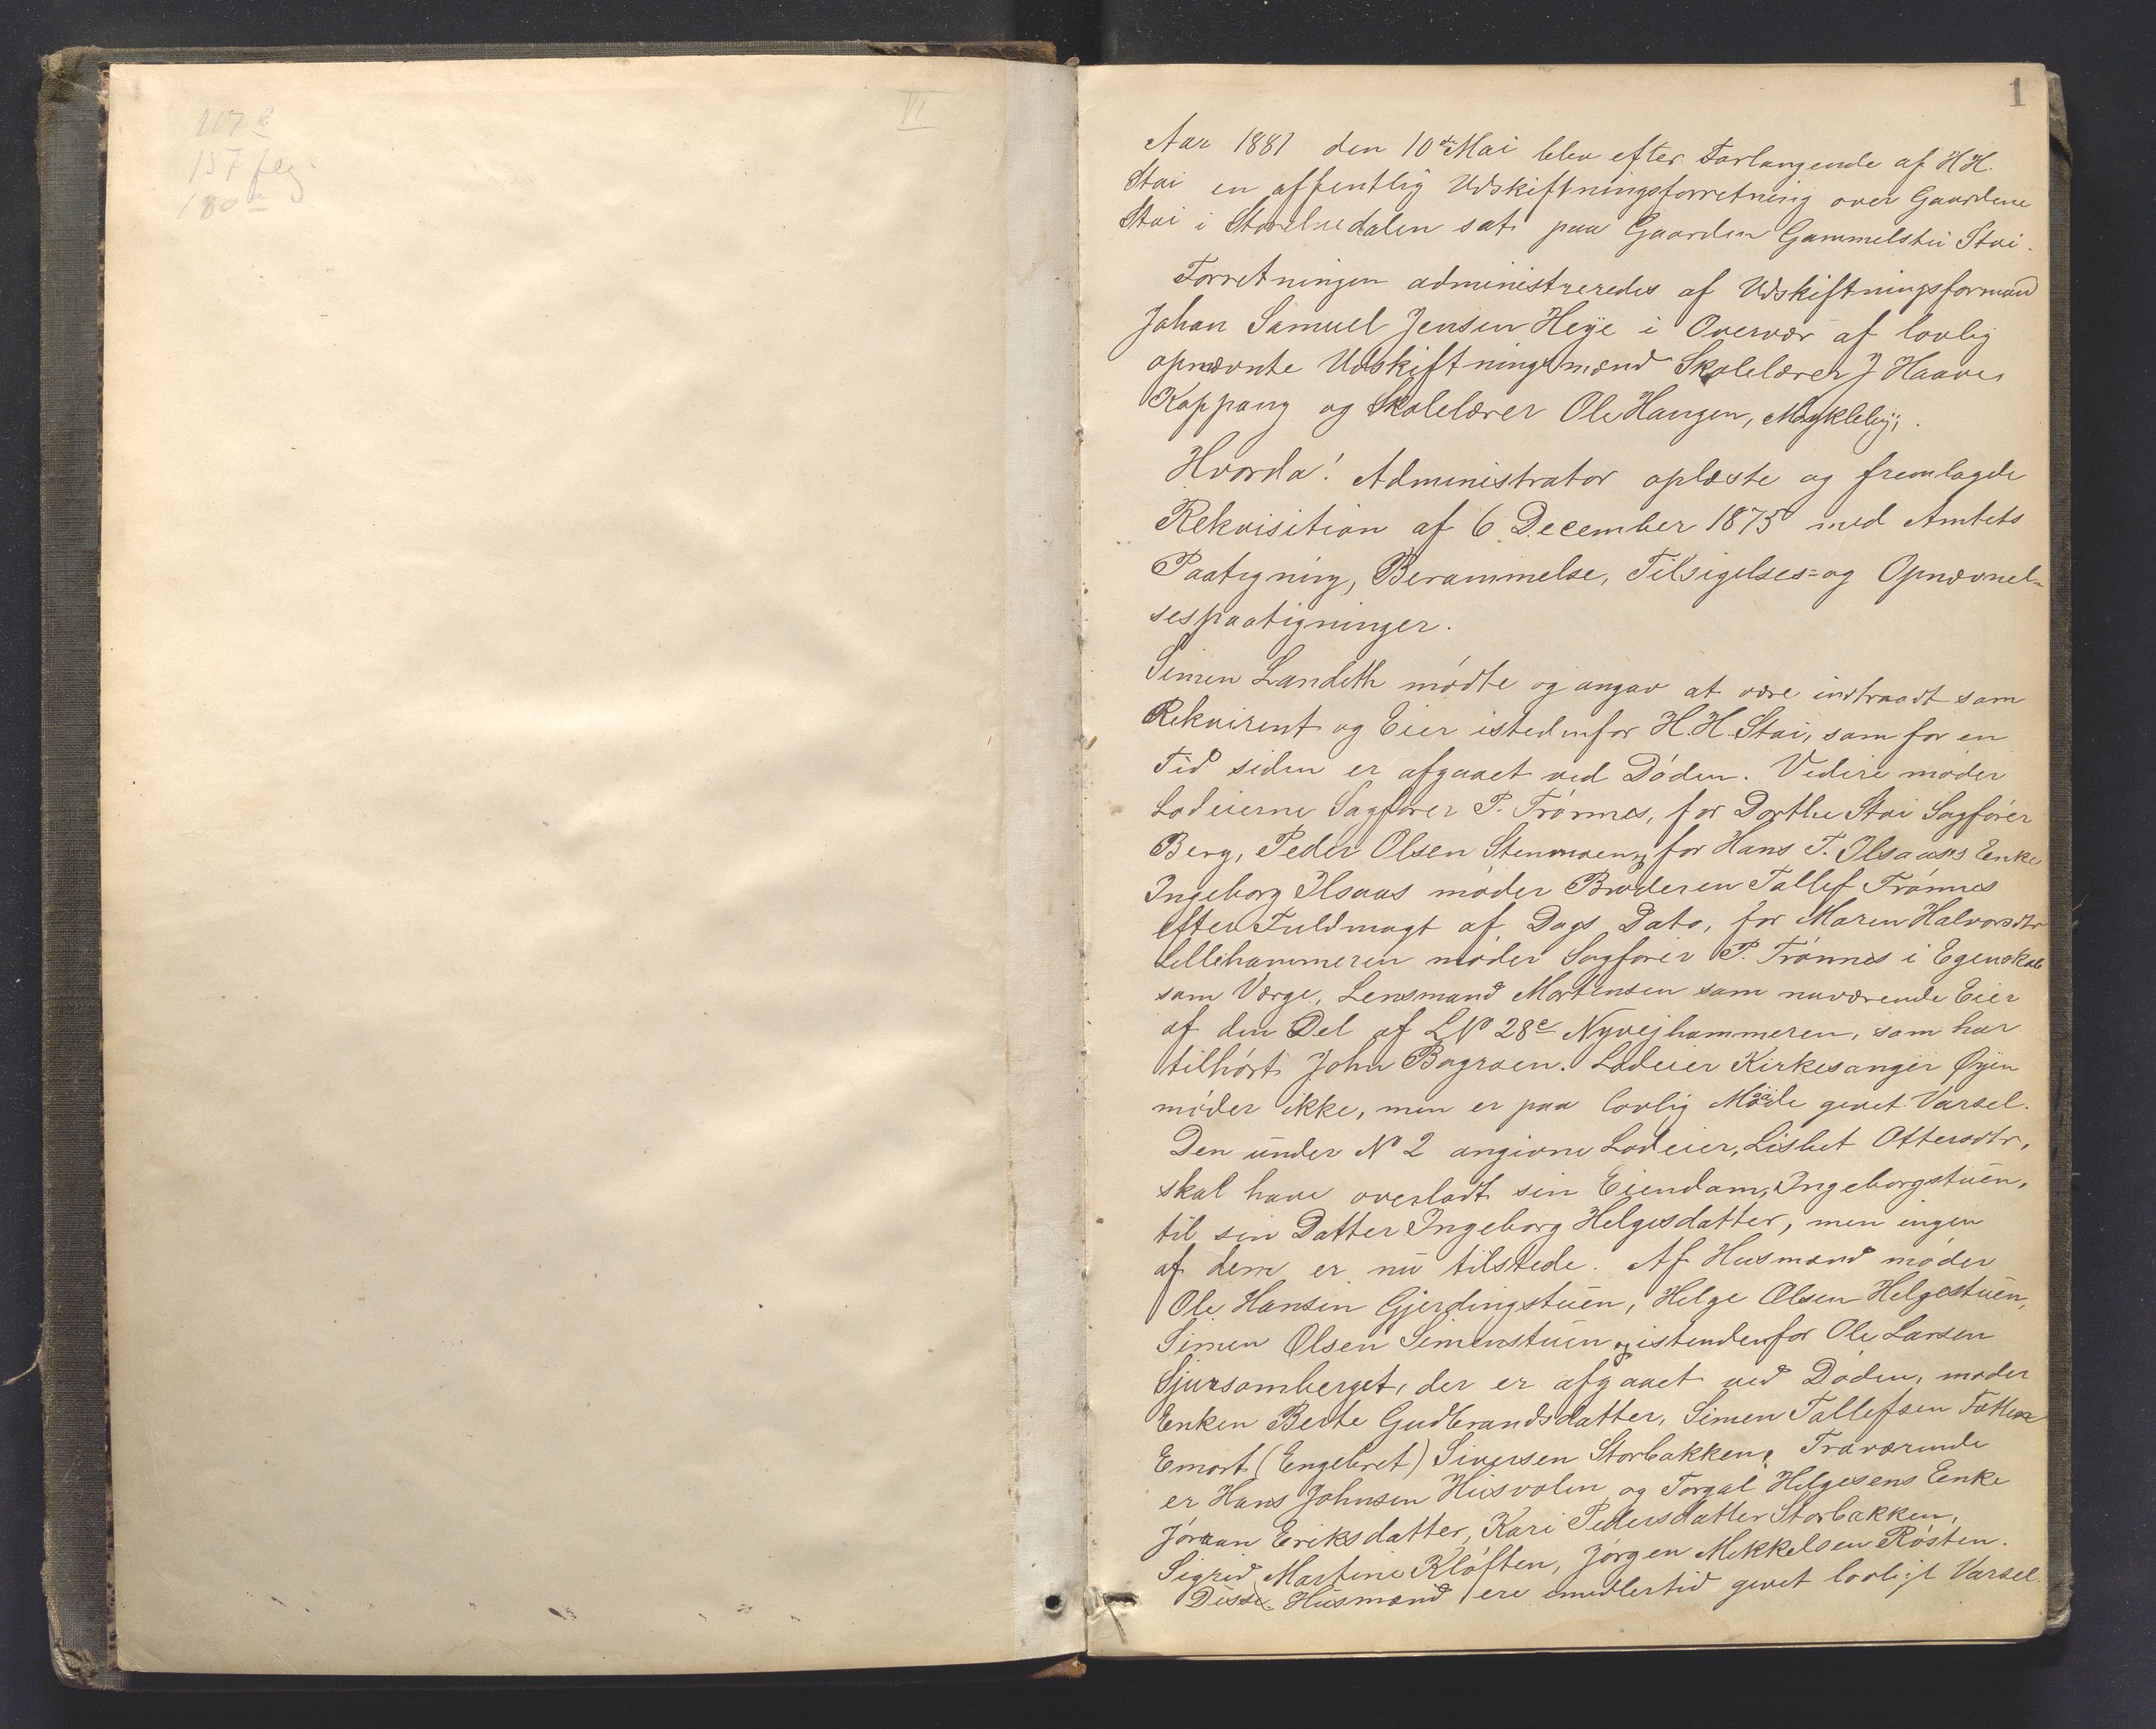 117 b
157 flg.
180 a
VI
1
Aar 1881 den 10de Mai blev efter Forlangende af H H.
Stai en offentlig Udskiftningsforretning over Gaardene
Stai i Storelvedalen sat paa Gaarden Gammelstu Stai.
Forretningen administreredes af Udskiftningsformand
Johan Samuel Jensen Heije i Overvær af lovlig
opnævnte Udskiftningsmænd Skolelærer J Haave,
Koppang og Skolelærer Ole Haugen, Mykleby;
Hvorda! Administrator oplæste og fremlagde
Rekvisition af 6 December 1875 med Amtets
Paategning, Berammelse, Tilsigelses= og Opnævnel=
sespaategninger.
Simen Landeth mødte og angav at være indtraadt som
Rekvirent og Eier istedenfor H. H. Stai, som for en
Tid siden er afgaaet ved Døden. Videre møder
Lodeierne Sagfører P. Trønnes, for Dorthe Stai Sagfører
Berg, Peder Olsen Stenmoen, og for Hans T. Ilsaas's Enke
Ingeborg Ilsaas møder Broderen Tollef Trønnes
efter Fuldmagt af Dags Dato, for Maren Halvorsdtr
Lillehammeren møder Sagfører P. Trønnes i Egenskab
som Værge, Lensmand Mortensen som nuværende Eier
af den Del af L N 28c Nyvejhammeren, som har
tilhørt John Bagroen. Lodeier Kirkesanger Øyen
møder ikke, men er paa lovlig Maade givet Varsel.
Den under N 2 angivne Lodeier, Lisbet Ottersdtr,
skal have overladt sin Eiendom, Ingeborgstuen,
til sin Datter Ingeborg Helgesdatter, men ingen
af dem er nu tilstede. Af Husmænd møder
Ole Hansen Gjerdingstuen, Helge Olsen Helgestuen,
Simen Olsen Simenstuen og istedenfor Ole Larsen
Sjursomberget, der er afgaaet ved Døden, møder
Enken Berte Gudbrandsdatter, Simen Tollefsen
Emort (Engebret) Siversen Storbakken. Fraværende
er Hans Johnsen Husvolen og Torgal Helgesens Enke
Jøraan Eriksdatter, Kari Pedersdatter Storbakken,
Sigrid Martine Kløften, Jørgen Mikkelsen Røsten.
Disse Husmænd ere emidlertid givet lovligt Varsel.